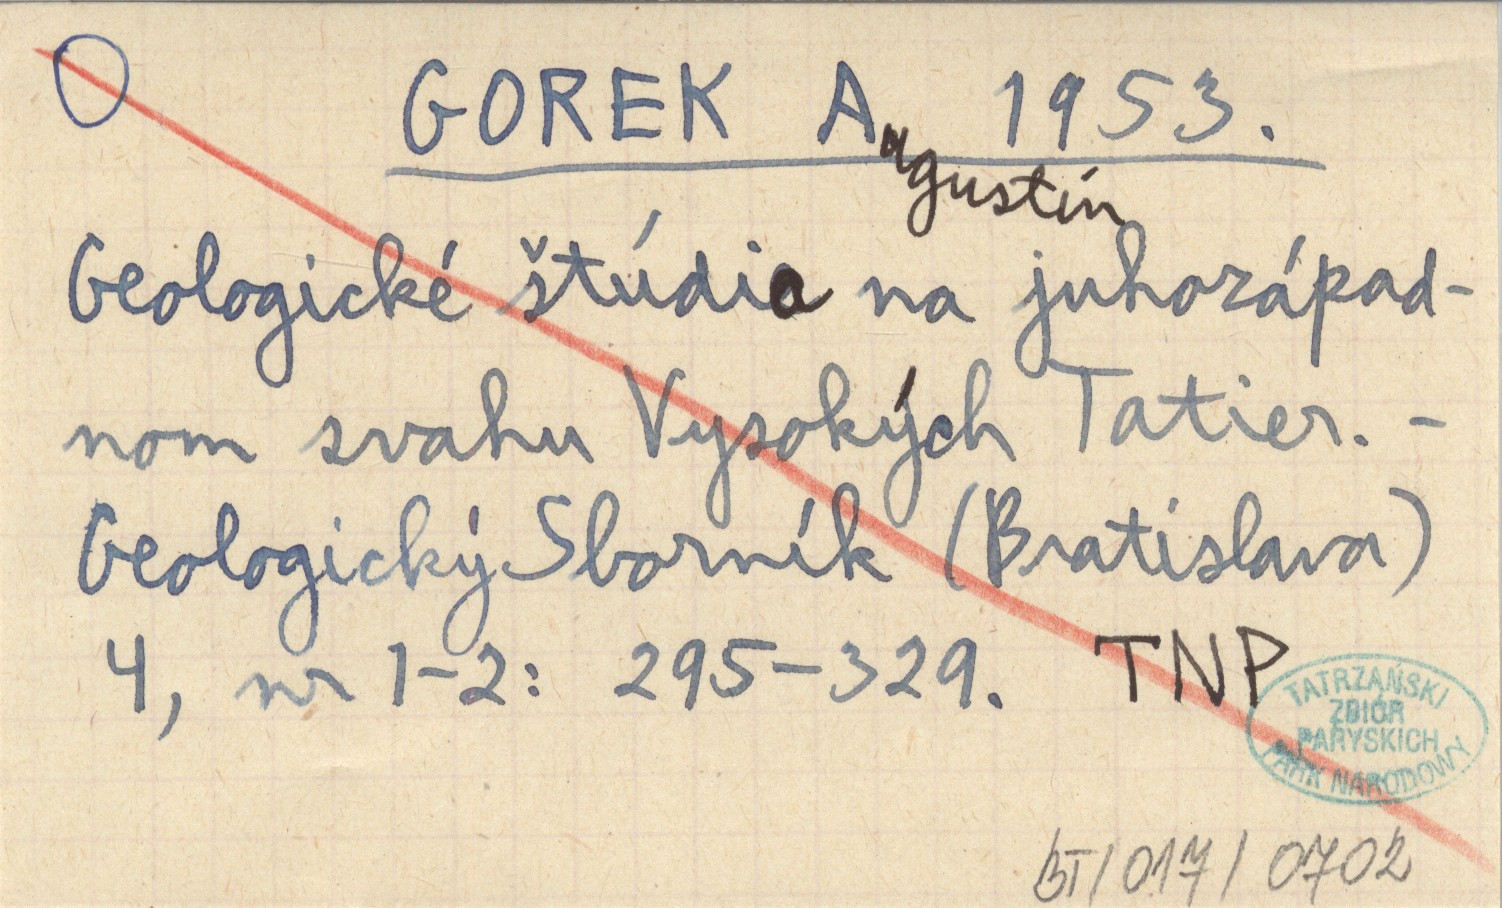 GOREK Augustín 1953.
Geologické štúdia na juhozápad-
nom svahu Vysokých Tatier. -
Geologický Sborník (Bratislava)
4, nr 1-2: 295-329. TNP
TATRZAŃSKI
ZBIÓR
PARYSKICH
PARK NARODOWY
BT/017/0702